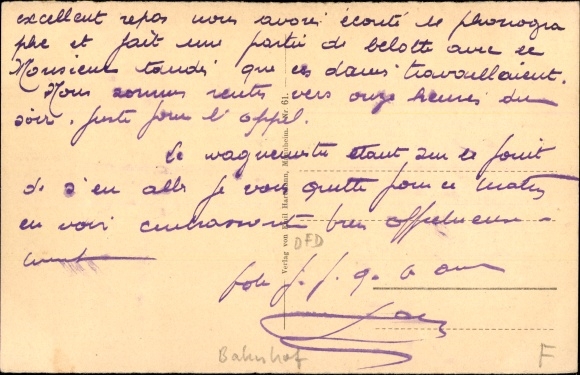 excellent repas nous avons écouté le phonogra
phe et fait une partie de belotte avec ce
Monsieur tandis que ces dames travaillaient.
Nous sommes rentrés vers onze heures du
soir. Juste pour l'appel.
Le vaguemestre étant sur le point
de s'en aller je vous quitte pour ce matin
en vous embrassant bien affectueuse-
ment
Verlag von Emil Hartmann, Mannheim. Nr. 61.
DFD
Bahnhof
F